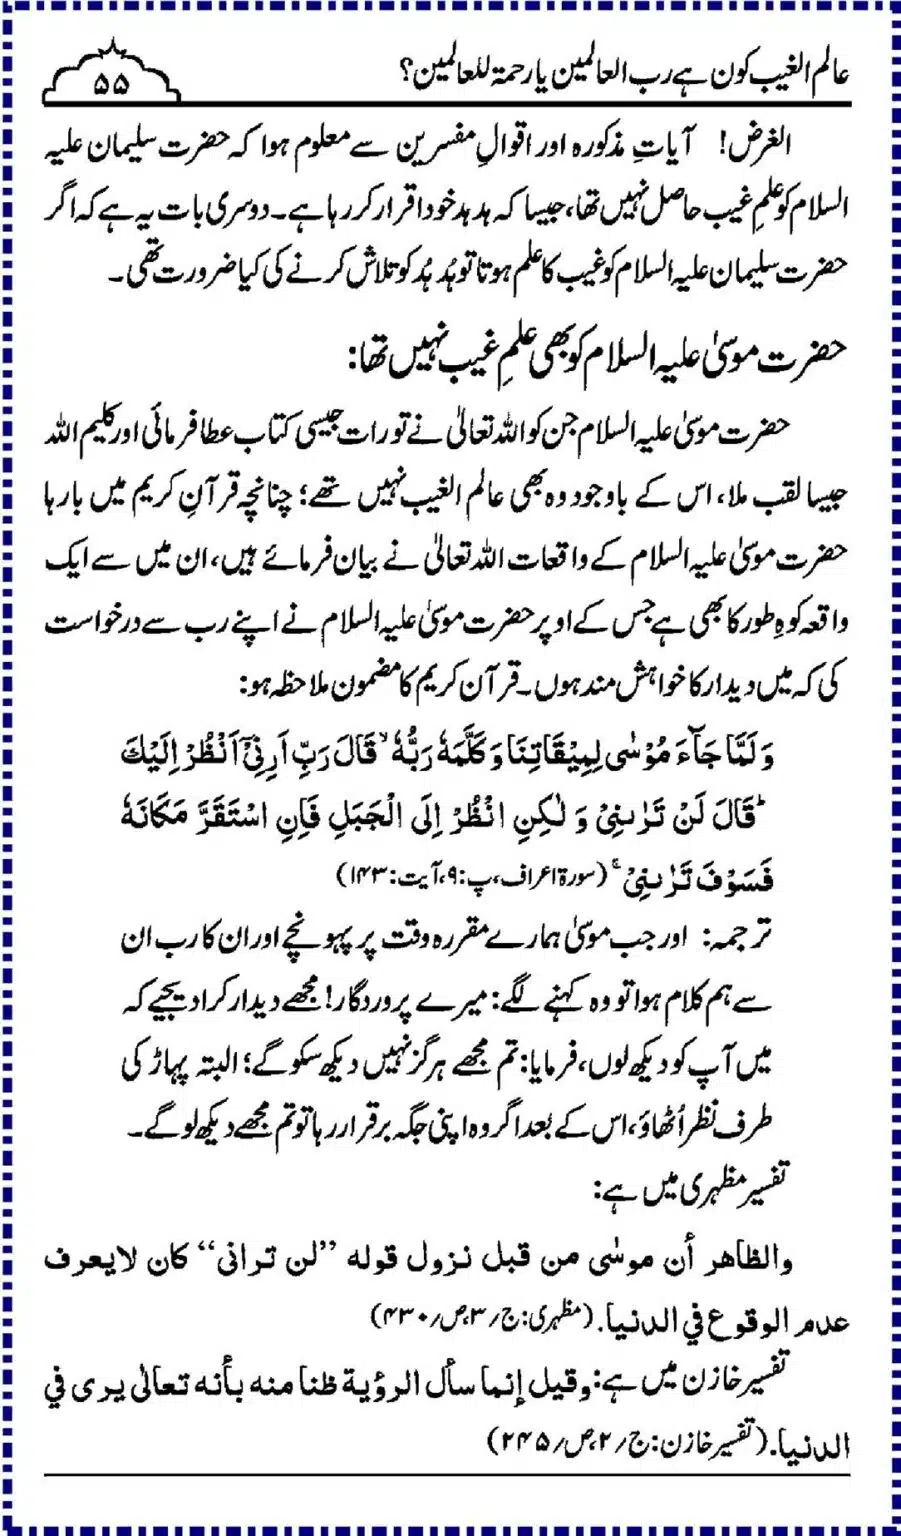 عالم الغیب کون ہے رب العالمین یا رحمۃ للعالمین؟
۵۵
الغرض! آیاتِ مذکورہ اور اقوالِ مفسرین سے معلوم ہوا کہ حضرت سلیمان علیہ
السلام کو علمِ غیب حاصل نہیں تھا، جیسا کہ ہدہد خود اقرار کر رہا ہے۔ دوسری بات یہ ہے کہ اگر
حضرت سلیمان علیہ السلام کو غیب کا علم ہوتا تو ہُدہُد کو تلاش کرنے کی کیا ضرورت تھی۔
حضرت موسیٰ علیہ السلام کو بھی علمِ غیب نہیں تھا:
حضرت موسیٰ علیہ السلام جن کو اللہ تعالیٰ نے تورات جیسی کتاب عطا فرمائی اور کلیم اللہ
جیسا لقب ملا، اس کے باوجود وہ بھی عالم الغیب نہیں تھے؛ چنانچہ قرآنِ کریم میں بارہا
حضرت موسیٰ علیہ السلام کے واقعات اللہ تعالیٰ نے بیان فرمائے ہیں، ان میں سے ایک
واقعہ کوہِ طور کا بھی ہے جس کے اوپر حضرت موسیٰ علیہ السلام نے اپنے رب سے درخواست
کی کہ میں دیدار کا خواہش مند ہوں۔ قرآن کریم کا مضمون ملاحظہ ہو:
وَلَمَّا جَآءَ مُوْسٰی لِمِیْقَاتِنَا وَکَلَّمَهٗ رَبُّهٗ ۙ قَالَ رَبِّ اَرِنِیْۤ اَنْظُرْ اِلَیْكَ
ؕ قَالَ لَنْ تَرٰىنِیْ وَ لٰکِنِ انْظُرْ اِلَی الْجَبَلِ فَاِنِ اسْتَقَرَّ مَکَانَهٗ
فَسَوْفَ تَرٰىنِیْ ۚ (سورۃ اعراف، پ:۹، آیت:۱۴۳)
ترجمہ: اور جب موسیٰ ہمارے مقررہ وقت پر پہونچے اور ان کا رب ان
سے ہم کلام ہوا تو وہ کہنے لگے: میرے پروردگار! مجھے دیدار کرا دیجیے کہ
میں آپ کو دیکھ لوں، فرمایا: تم مجھے ہرگز نہیں دیکھ سکو گے؛ البتہ پہاڑ کی
طرف نظر اُٹھاؤ، اس کے بعد اگر وہ اپنی جگہ برقرار رہا تو تم مجھے دیکھ لو گے۔
تفسیر مظہری میں ہے:
والظاهر أن موسٰی من قبل نزول قوله ’’لن ترانی‘‘ کان لا یعرف
عدم الوقوع في الدنیا. (مظہری: ج/۳، ص/۴۳۰)
تفسیر خازن میں ہے: وقیل إنما سأل الرؤیة ظنا منه بأنه تعالیٰ یری في
الدنیا. (تفسیر خازن: ج/۲، ص/۲۴۵)